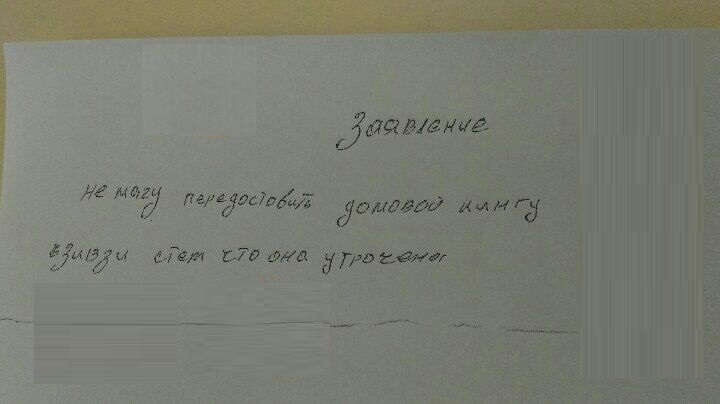 Заявление
не магу передоставить домовой кингу
взивзи стем что она утрочена